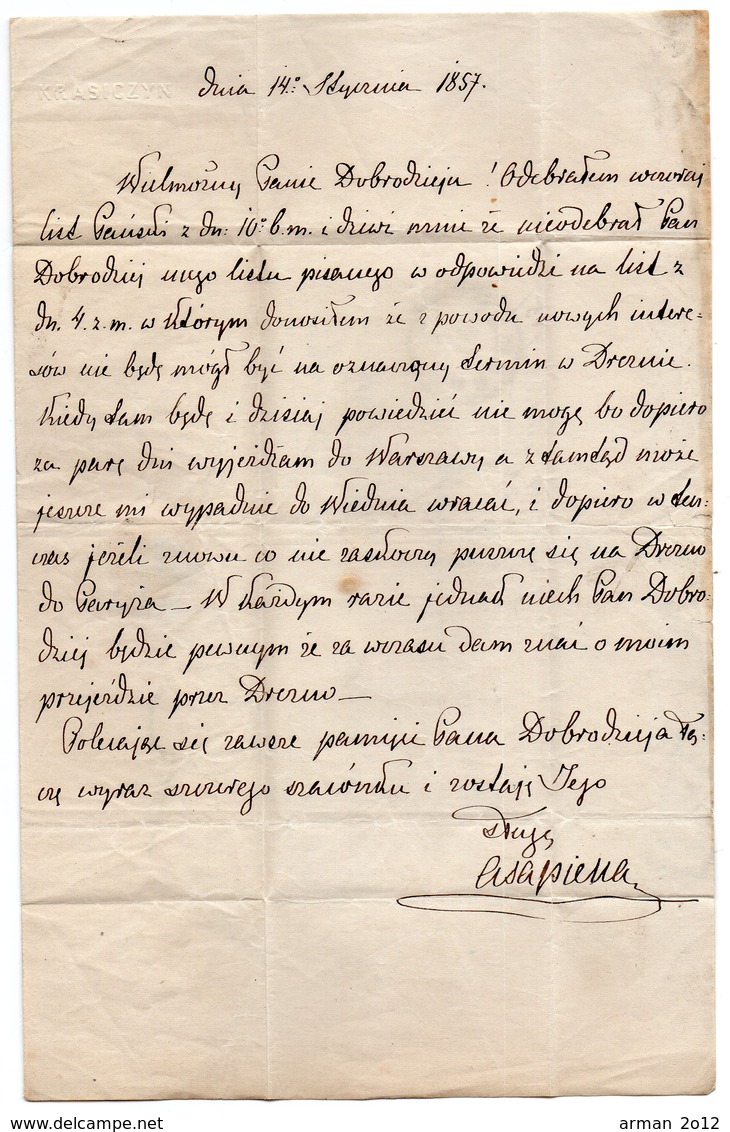 KRASICZYN
dnia 14º Stycznia 1857.
Wielmożny Panie Dobrodzieju! Odebrałem wczoraj
list Pański z dn: 10º b.m. i dziwi mnie że nieodebrał Pan
Dobrodziej mego listu pisanego w odpowiedzi na list z
dn. 4. z. m. w którym donosiłem że z powodu nowych intere=
sów nie będę mógł być na oznaczony termin w Dreznie.
Kiedy tam będę i dzisiaj powiedzieć nie mogę bo dopiero
za parę dni wyjeżdżam do Warszawy a z tamtąd może
jeszcze mi wypadnie do Wiednia wracać, i dopiero w ten=
czas jeżeli znowu co nie zaskoczy puszczę się na Drezno
do Paryża — W każdym razie jednak niech Pan Dobro=
dziej będzie pewnym że za wczasu dam znać o moim
przejeździe przez Drezno —
Polecając się zawsze pamięci Pana Dobrodzieja łą=
czę wyraz szczerego szacunku i zostaję Jego
sługą
ASapieha
arman 2012